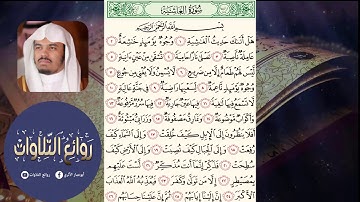 سُورَةُ الغَاشِيَةِ
بِسْمِ اللَّهِ الرَّحْمَٰنِ الرَّحِيمِ
هَلْ أَتَىٰكَ حَدِيثُ ٱلْغَٰشِيَةِ ١ وُجُوهٌ يَوْمَئِذٍ خَٰشِعَةٌ ٢
عَامِلَةٌ نَّاصِبَةٌ ٣ تَصْلَىٰ نَارًا حَامِيَةً ٤ تُسْقَىٰ مِنْ عَيْنٍ ءَانِيَةٍ ٥
لَّيْسَ لَهُمْ طَعَامٌ إِلَّا مِن ضَرِيعٍ ٦ لَّا يُسْمِنُ وَلَا يُغْنِي مِن جُوعٍ ٧
وُجُوهٌ يَوْمَئِذٍ نَّاعِمَةٌ ٨ لِّسَعْيِهَا رَاضِيَةٌ ٩ فِي جَنَّةٍ عَالِيَةٍ ١٠
لَّا تَسْمَعُ فِيهَا لَٰغِيَةً ١١ فِيهَا عَيْنٌ جَارِيَةٌ ١٢ فِيهَا سُرُرٌ مَّرْفُوعَةٌ ١٣
وَأَكْوَابٌ مَّوْضُوعَةٌ ١٤ وَنَمَارِقُ مَصْفُوفَةٌ ١٥ وَزَرَابِيُّ مَبْثُوثَةٌ ١٦
أَفَلَا يَنظُرُونَ إِلَى ٱلْإِبِلِ كَيْفَ خُلِقَتْ ١٧ وَإِلَى ٱلسَّمَاءِ كَيْفَ
رُفِعَتْ ١٨ وَإِلَى ٱلْجِبَالِ كَيْفَ نُصِبَتْ ١٩ وَإِلَى ٱلْأَرْضِ كَيْفَ
سُطِحَتْ ٢٠ فَذَكِّرْ إِنَّمَا أَنتَ مُذَكِّرٌ ٢١ لَّسْتَ عَلَيْهِم
بِمُصَيْطِرٍ ٢٢ إِلَّا مَن تَوَلَّىٰ وَكَفَرَ ٢٣ فَيُعَذِّبُهُ ٱللَّهُ ٱلْعَذَابَ
ٱلْأَكْبَرَ ٢٤ إِنَّ إِلَيْنَا إِيَابَهُمْ ٢٥ ثُمَّ إِنَّ عَلَيْنَا حِسَابَهُم ٢٦
رَوَائِعُ التِّلَاوَات
روائع التلاوات